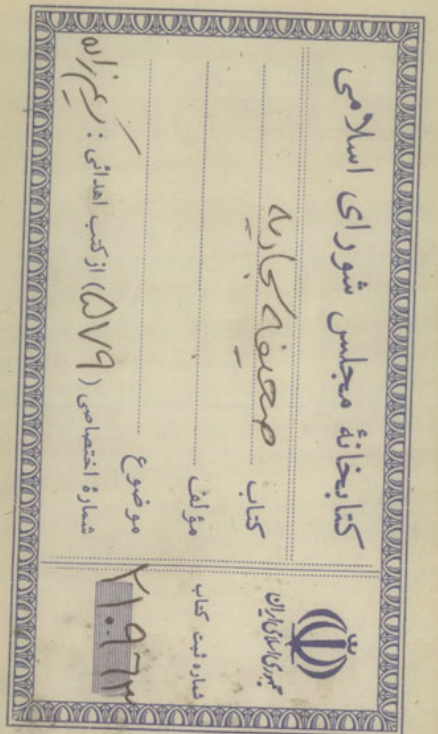 کتابخانهٔ مجلس شورای اسلامی
کتاب صحیفه سجادیه
مؤلف
موضوع
شمارهٔ اختصاصی (۵۷۹) از کتب اهدائی:
جمهوری اسلامی ایران
شماره ثبت کتاب
۲۱۰۹۶۳